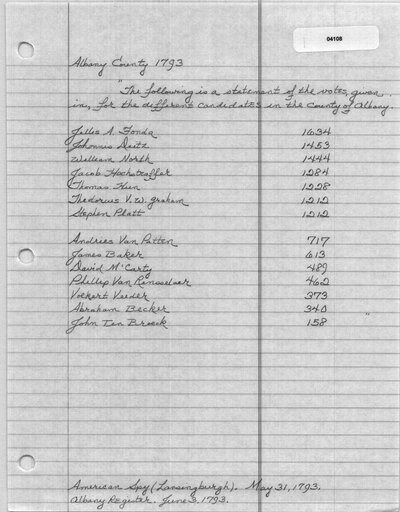 04108
Albany County 1793
"The following is a statement of the votes, given
in, for the different candidates in the County of Albany.
Jellis A. Fonda 1634
Johannis Deitz 1453
William North 1444
Jacob Hochstrasser 1284
Thomas Hun 1228
Theodorus V. W. Graham 1212
Stephen Platt 1212
Andries Van Patten 717
James Baker 613
David McCarty 489
Phillip Van Rensselaer 462
Volkert Veeder 373
Abraham Becker 340 "
John Ten Broeck 158
American Spy (Lansingburgh). May 31, 1793.
Albany Register. June 3, 1793.